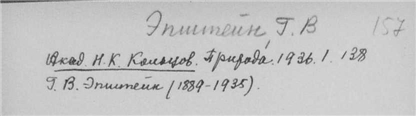 Эпштейн Г. В 157
Акад. Н. К. Кольцов. Природа. 1936. 1. 138
Г. В. Эпштейн (1889-1935).